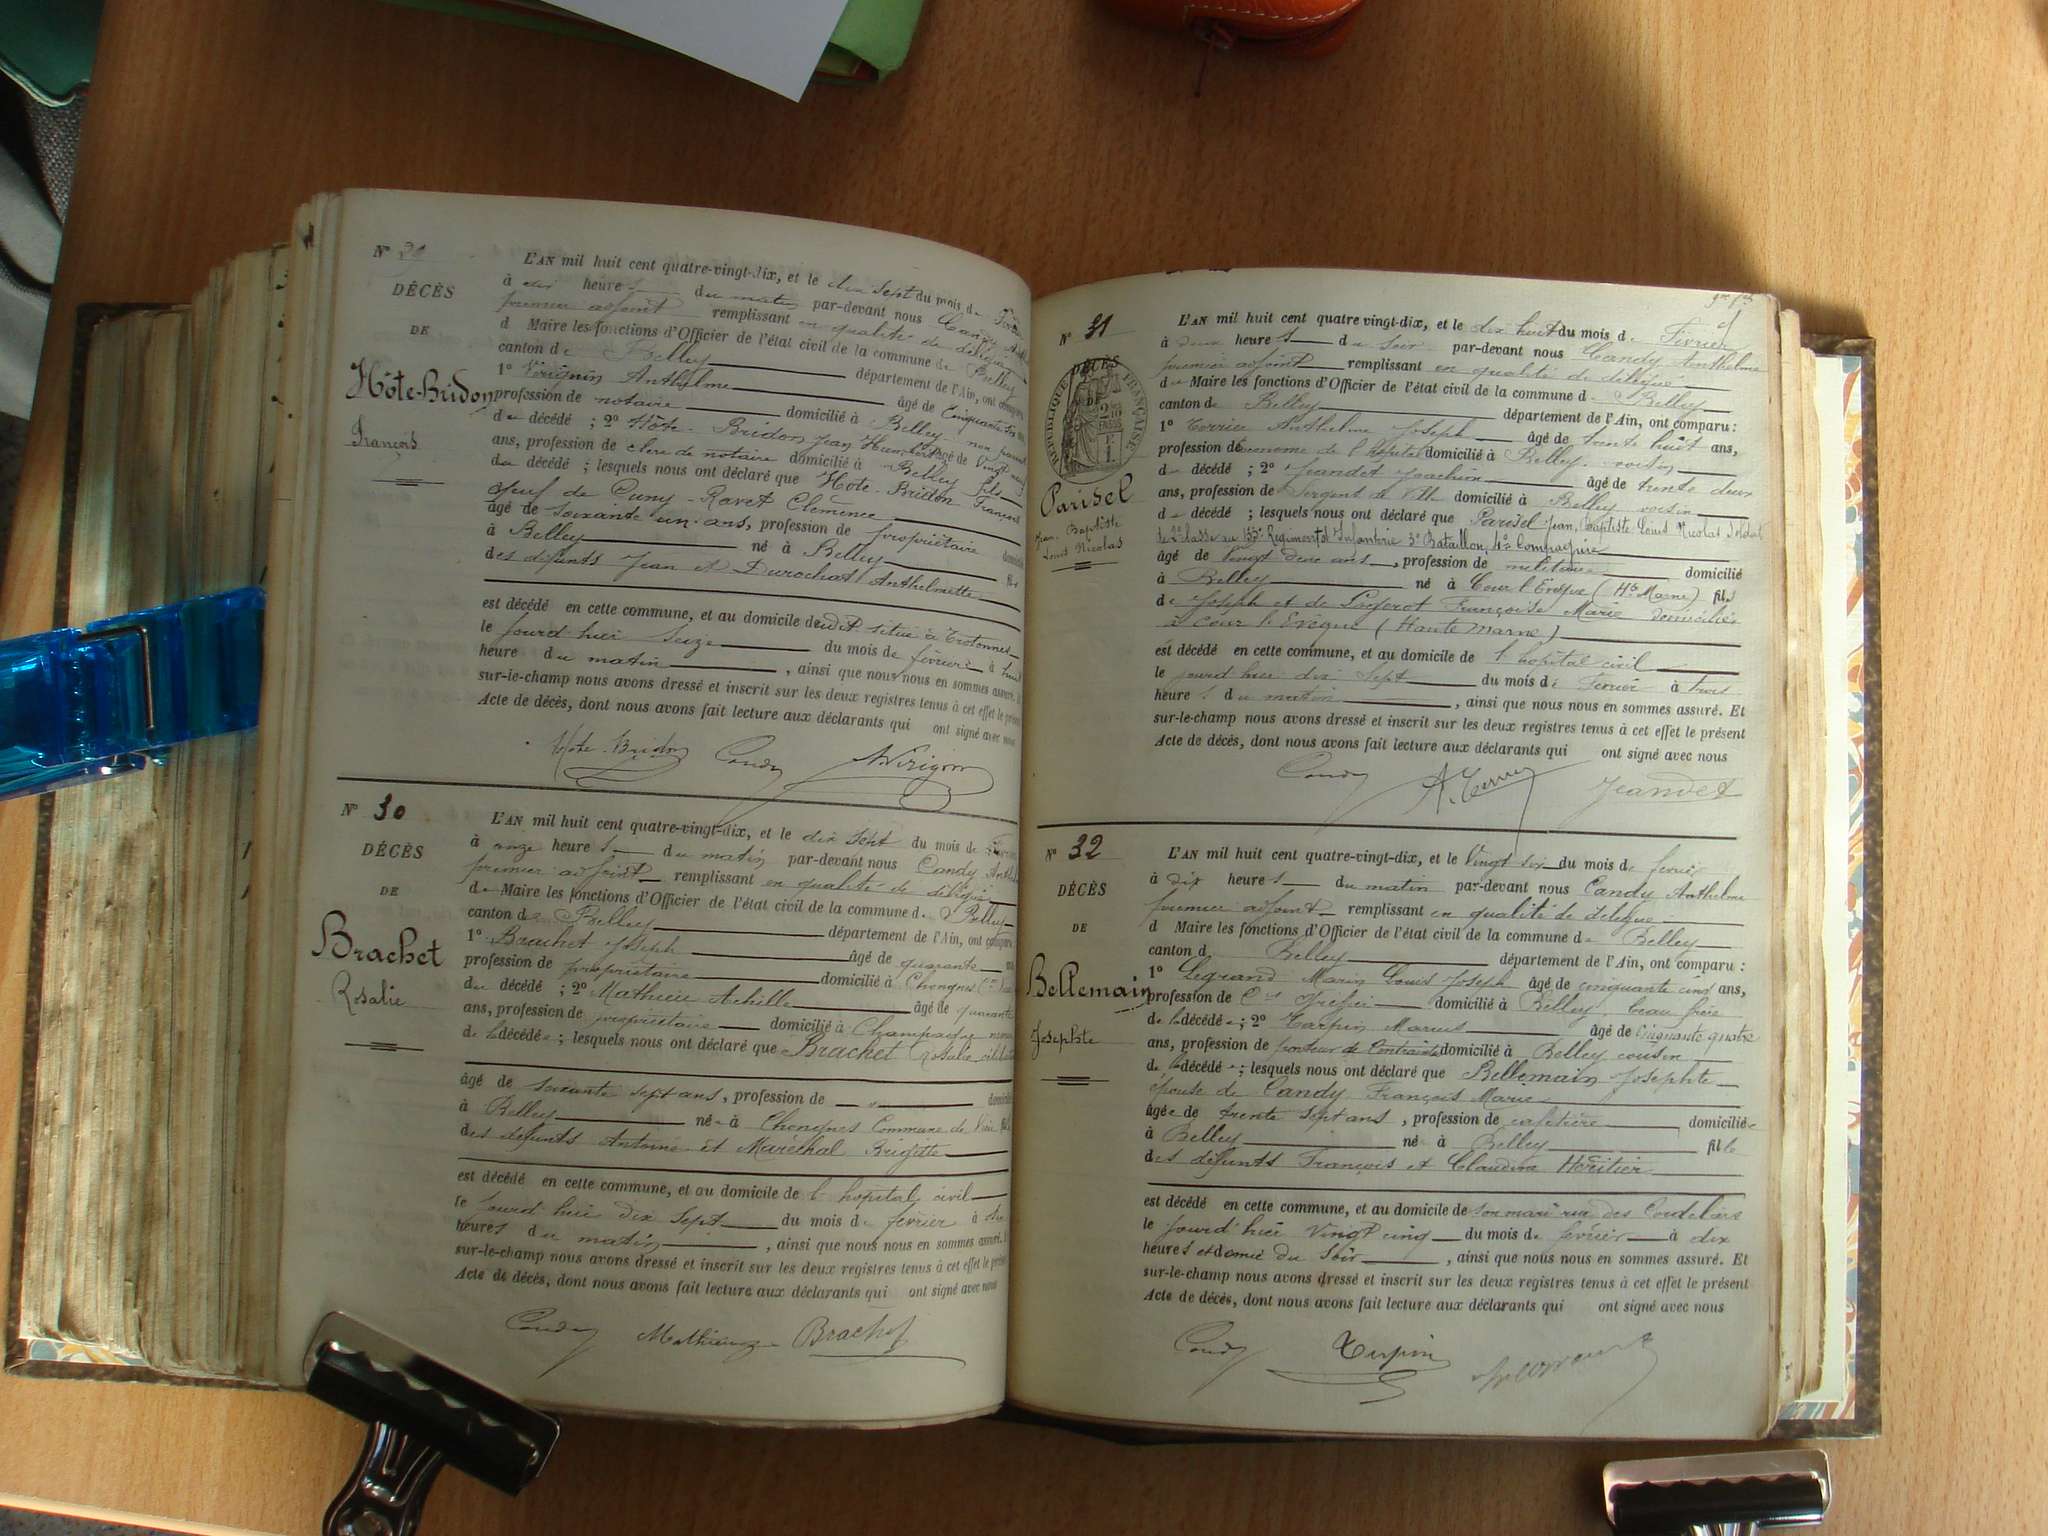 N° 29
DÉCÈS
DE
Hôte-Bridon
François
L'AN mil huit cent quatre-vingt-dix, et le dix sept du mois de
à dix heures du matin par-devant nous Candy
premier adjoint remplissant en qualité de délégué
d Maire les fonctions d'Officier de l'état civil de la commune de Belley
canton de Belley département de l'Ain, ont comparu
1° Vérignin Anthelme âgé de Cinquante
profession de notaire domicilié à Belley non parent
du décédé ; 2° Hôte-Bridon Jean Humbert âgé de Vingt neuf
ans, profession de clerc de notaire domicilié à Belley fils
du décédé ; lesquels nous ont déclaré que Hôte-Bridon François
veuf de Cuny-Ravet Clémence
âgé de Soixante un ans, profession de propriétaire domicilié
à Belley né à Belley fils
des défunts Jean et Durochat Anthelmette
est décédé en cette commune, et au domicile dudit situé à
le jourd'hier Seize du mois de février à huit
heure du matin , ainsi que nous nous en sommes assuré.
sur-le-champ nous avons dressé et inscrit sur les deux registres tenus à cet effet le présent
Acte de décès, dont nous avons fait lecture aux déclarants qui ont signé avec nous
Hote-Bridon Candy
N° 30
DÉCÈS
DE
Brachet
Rosalie
L'AN mil huit cent quatre-vingt-dix, et le dix sept du mois de
à onze heures du matin par-devant nous Candy
premier adjoint remplissant en qualité de délégué
du Maire les fonctions d'Officier de l'état civil de la commune de Belley
canton de Belley département de l'Ain, ont comparu
1° Brachet Joseph âgé de quarante
profession de propriétaire domicilié à
du décédé ; 2° Mathieu Achille âgé de quarante
ans, profession de propriétaire domicilié à Champagne
de la décédée ; lesquels nous ont déclaré que Brachet Rosalie
âgé de soixante sept ans, profession de domicilié
à Belley née à Commune de
des défunts Antoine et Maréchal Brigitte
est décédé en cette commune, et au domicile de l'hopital civil
le jourd'hui dix sept du mois de février à
heures du matin , ainsi que nous nous en sommes assuré.
sur-le-champ nous avons dressé et inscrit sur les deux registres tenus à cet effet le présent
Acte de décès, dont nous avons fait lecture aux déclarants qui ont signé avec nous
Candy Brachet
N° 31
DÉCÈS
DE
RÉPUBLIQUE FRANÇAISE
Parisel
Jean Baptiste
Louis Nicolas
L'AN mil huit cent quatre vingt-dix, et le dix huit du mois de Février
à deux heures du soir par-devant nous Candy Anthelme
premier adjoint remplissant en qualité de délégué
du Maire les fonctions d'Officier de l'état civil de la commune de Belley
canton de Belley département de l'Ain, ont comparu :
1° Anthelme Joseph âgé de trente huit ans,
profession d'économe de l'hôpital domicilié à Belley voisin
du décédé ; 2° Jeandet Joachim âgé de trente deux
ans, profession de Sergent de Ville domicilié à Belley voisin
du décédé ; lesquels nous ont déclaré que Parisel Jean Baptiste Louis Nicolas Soldat
de 2e classe au 133e Régiment d'Infanterie 3e Bataillon, 4e Compagnie
âgé de vingt deux ans , profession de militaire domicilié
à Belley né à Cour l'Evêque (Hte Marne) fils
de Joseph et de Françoise Marie domiciliés
à Cour l'Evêque (Haute Marne)
est décédé en cette commune, et au domicile de l'hopital civil
le jourd'hier dix sept du mois de Février à trois
heures du matin , ainsi que nous nous en sommes assuré. Et
sur-le-champ nous avons dressé et inscrit sur les deux registres tenus à cet effet le présent
Acte de décès, dont nous avons fait lecture aux déclarants qui ont signé avec nous
Candy Jeandet
N° 32
DÉCÈS
DE
Bellemain
Josephte
L'AN mil huit cent quatre-vingt-dix, et le Vingt six du mois de février
à dix heures du matin par-devant nous Candy Anthelme
premier adjoint remplissant en qualité de délégué
d Maire les fonctions d'Officier de l'état civil de la commune de Belley
canton d Belley département de l'Ain, ont comparu :
1° Legrand Marin Louis Joseph âgé de cinquante cinq ans,
profession de domicilié à Belley beau frère
de la décédée ; 2° Turpin Marius âgé de Cinquante quatre
ans, profession de porteur de Contraintes domicilié à Belley cousin
de la décédée ; lesquels nous ont déclaré que Bellemain Josephte
épouse de Candy François Marie
âgée de trente sept ans , profession de cafetière domiciliée
à Belley née à Belley fille
des défunts François et Claudine Héritier
est décédé en cette commune, et au domicile de son mari rue des Cordeliers
le jourd'hier Vingt cinq du mois de février à dix
heures et demie du Soir , ainsi que nous nous en sommes assuré. Et
sur-le-champ nous avons dressé et inscrit sur les deux registres tenus à cet effet le présent
Acte de décès, dont nous avons fait lecture aux déclarants qui ont signé avec nous
Candy Turpin